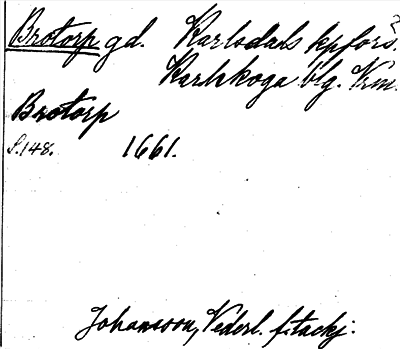 Brotorp gd. Karlsdals kpförs.?
Karlskoga blg. Vrm.
Brotorp
S.148. 1661.
Johansson, Nederl.